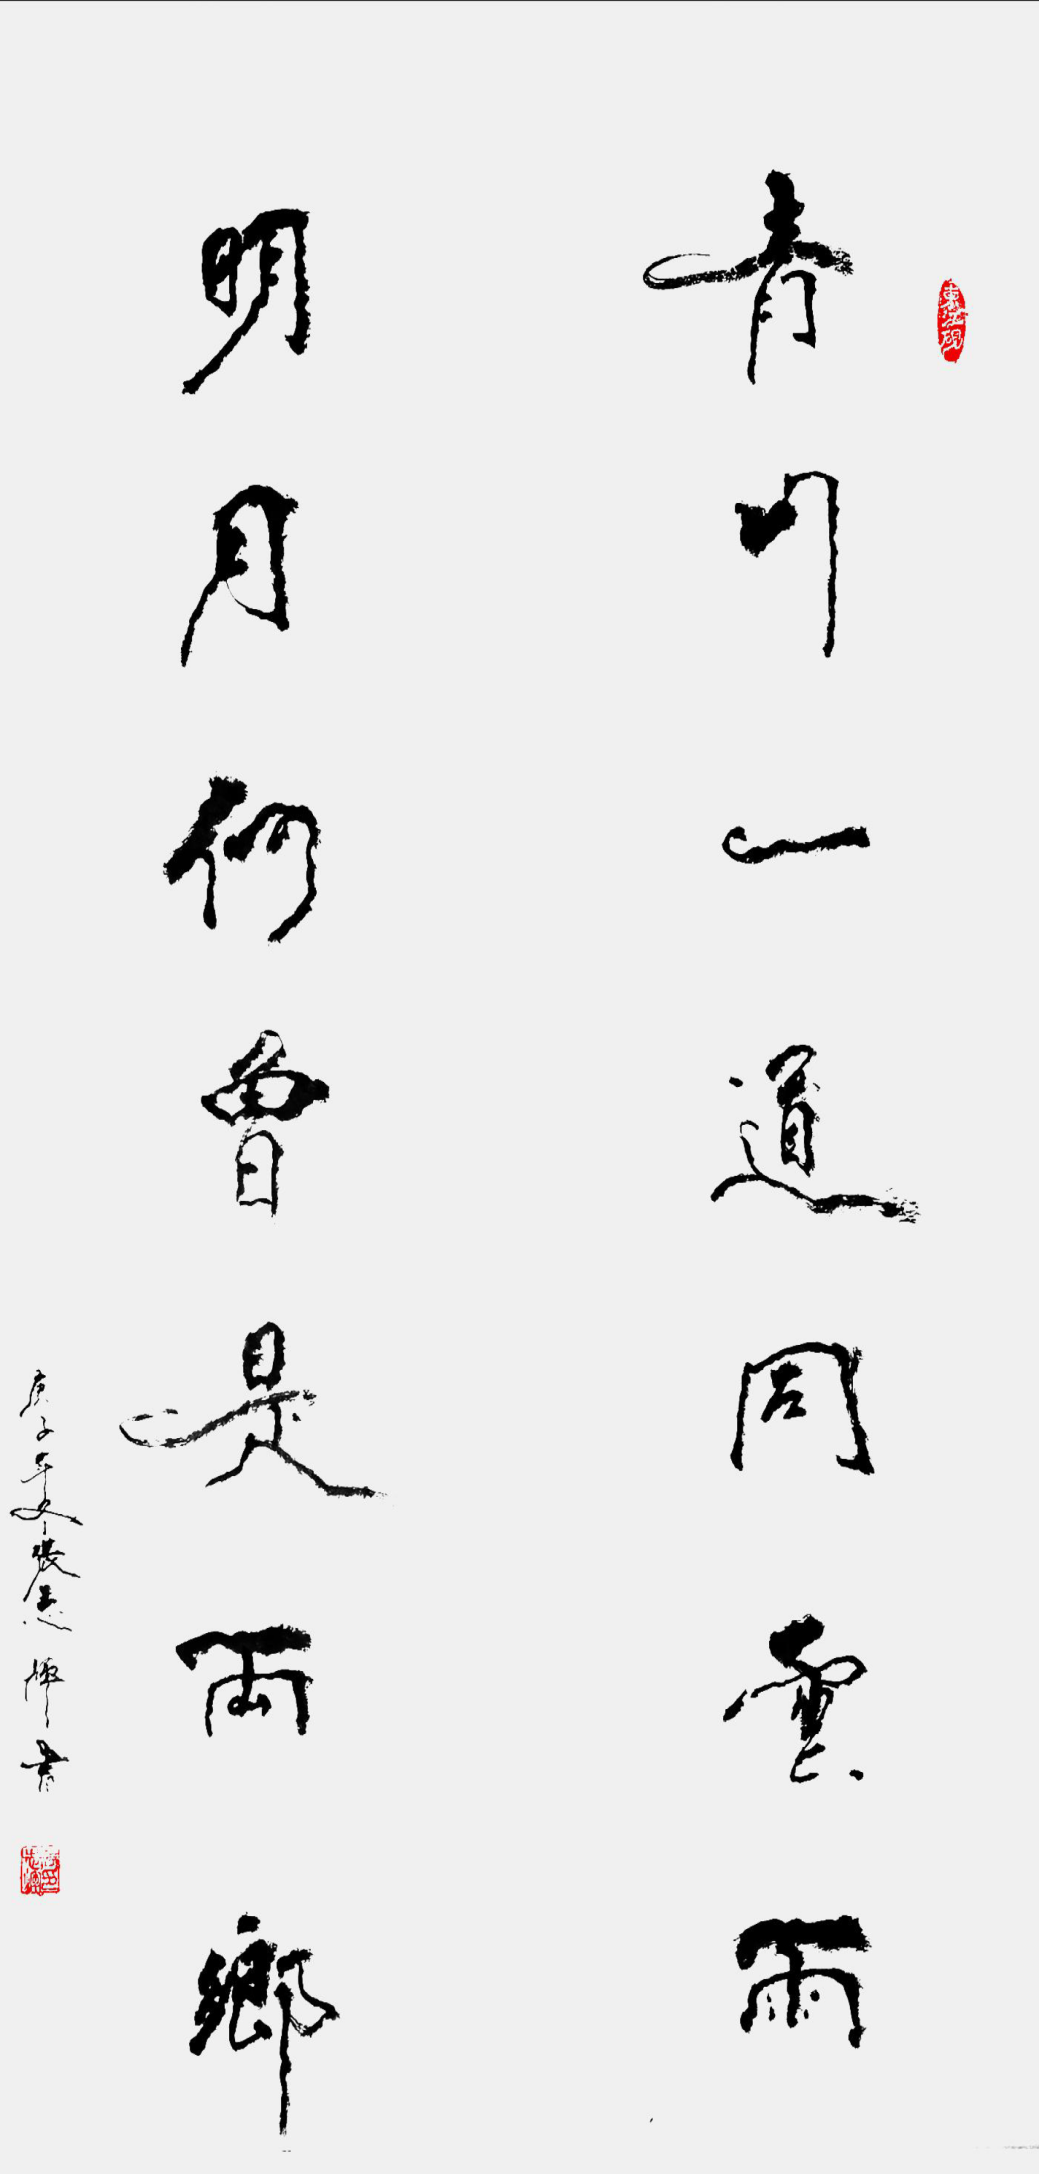 青山一道同雲雨
明月何曾是兩鄉
庚子年張志書